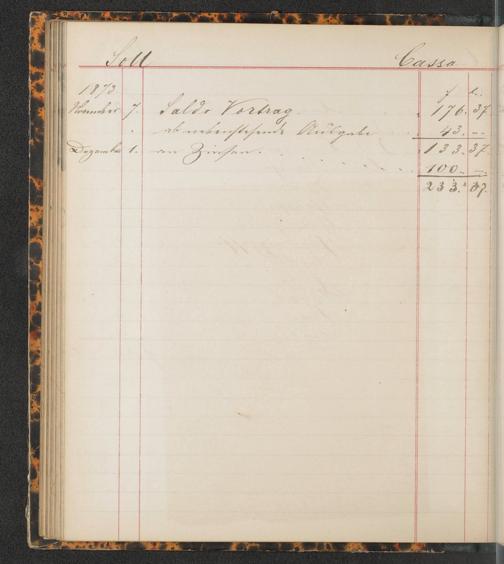 Soll Cassa
1873 f x.
November 7. Saldo Vortrag 176.37
ab nebenstehende Ausgabe 43.--
133.37
Dezember 1. an Zinsen. 100.--
233.37